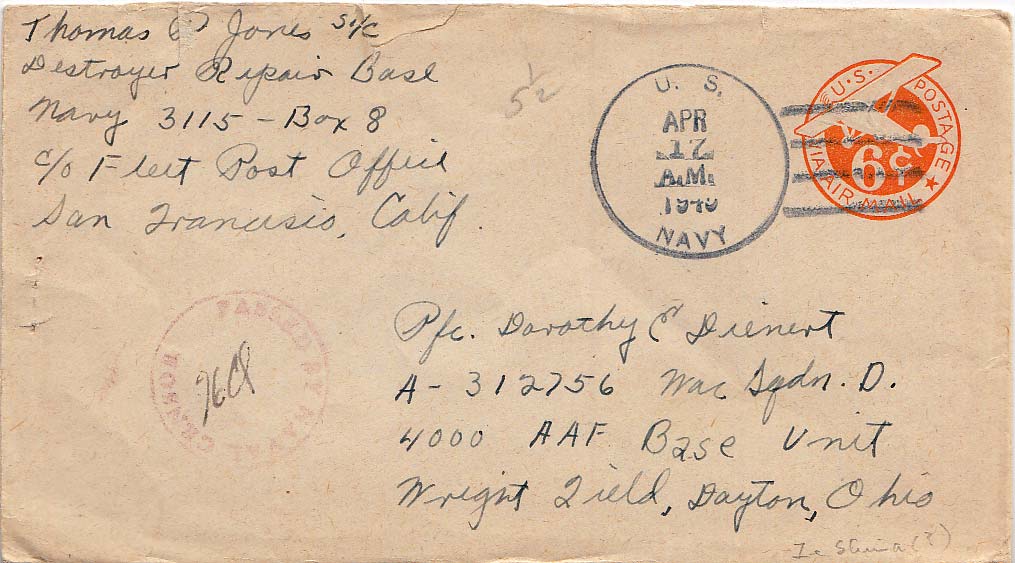 Thomas P Jones S1/c
Destroyer Repair Base
Navy 3115 - Box 8
c/o Fleet Post Office
San Francisio, Calif.
5 1/2
U. S.
APR
17
A.M.
NAVY
U.S. POSTAGE
6¢
VIA AIR MAIL
PASSED BY NAVAL CENSOR
Pfc. Dorothy E Dienert
A-312756 Wac Sqdn. D.
4000 AAF Base Unit
Wright Field, Dayton, Ohio